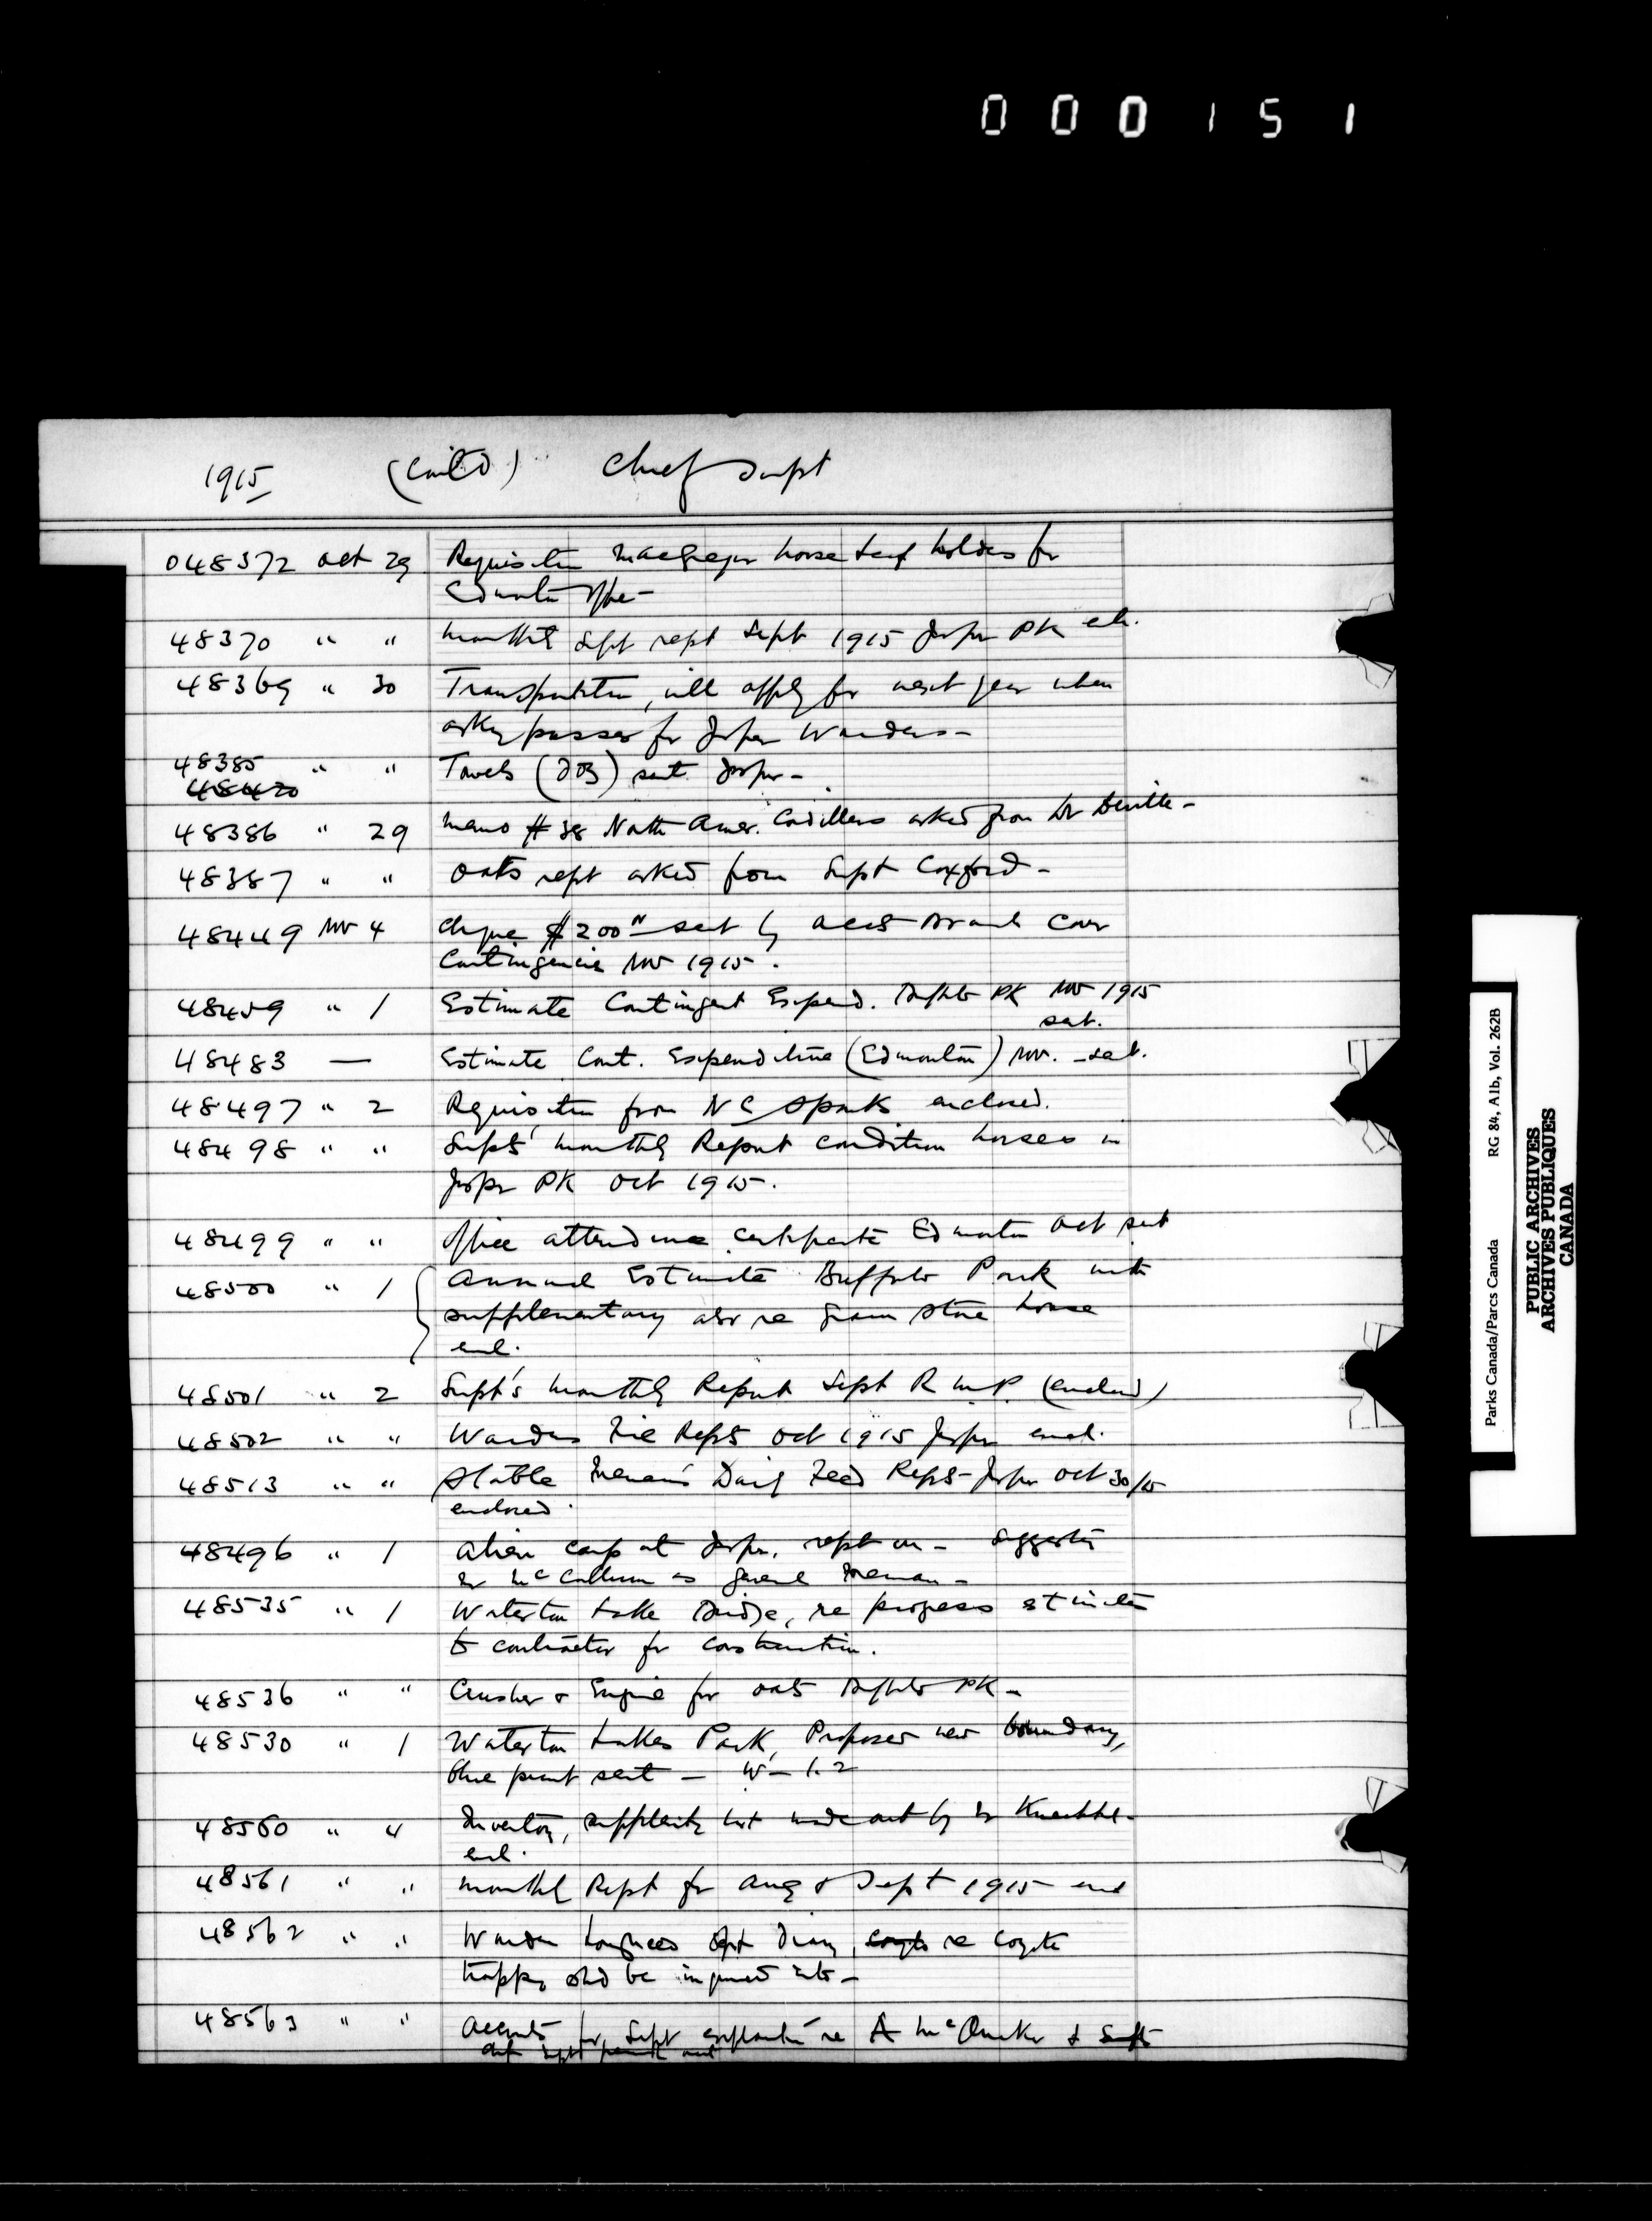 000151
1915 (Contd) Chief Supt
048372 Oct 29 Requisition MacGregor loose leaf holders for
Edmonton Office -
48370 " " Monthly Supt rept Sept 1915 Jasper Pk
48369 " 30 Transportation, will apply for next year when
asking passes for Jasper Wardens -
48385 " " Towels sent Jasper -
48420
48386 " 29 Memo # 38 North Amer. Cordillera asked from Dr Deville -
48387 " " Oats rept asked from Supt Coxford -
48449 Nov 4 Cheque $200 sent by Branch Cover
Contingencies Nov 1915.
48459 " 1 Estimate Contingent Expend. Buffalo Pk Nov 1915
sent.
48483 — Estimate Cont. Expenditure (Edmonton) Nov. - sent.
48497 " 2 Requisition from N C Sparks enclosed.
48498 " " Supts' Monthly Report condition horses in
Jasper Pk Oct 1915.
48499 " " Office attendance certificate Edmonton Oct sent
48500 " 1 Annual Estimate Buffalo Park with
supplementary also re grain store house
encl.
48501 " 2 Supt's Monthly Report Sept R M P (enclosed)
48502 " " Wardens Fire Repts Oct 1915 Jasper encl.
48513 " " Stable Foreman's Daily Feed Repts - Jasper Oct 30/15
enclosed.
48496 " 1 Alien camp at Jasper, rept on - Suggestion
Mr McCallum as general foreman -
48535 " 1 Waterton Lake Bridge, re progress estimates
to contractor for construction.
48536 " " Crusher & Engine for oats Buffalo Pk -
48530 " 1 Waterton Lakes Park, Proposed new boundary,
blue print sent - W - 1.2
48560 " 4 Inventory, supplementary list made out by Mr Knechtel -
encl.
48561 " " Monthly Rept for Aug & Sept 1915 encl
48562 " " Warden Sept Diary, re coyote
trapping shd be
48563 " " Accounts for Sept explanation re A McQuaker &
RG 84, A1b, Vol. 262B
Parks Canada/Parcs Canada
PUBLIC ARCHIVES
ARCHIVES PUBLIQUES
CANADA